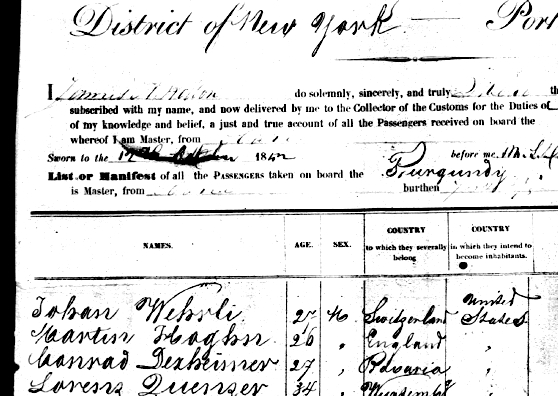 District of New York — Port
I do solemnly, sincerely, and truly
subscribed with my name, and now delivered by me to the Collector of the Customs for the Duties of
of my knowledge and belief, a just and true account of all the Passengers received on board the
whereof I am Master, from
Sworn to the 184 before me,
List or Manifest of all the PASSENGERS taken on board the Burgundy
is Master, from burthen
NAMES. AGE. SEX. COUNTRY to which they severally belong COUNTRY in which they intend to become inhabitants.
Johan Wehrli 27 M Switzerland United States
Martin Hoghn 26 " England "
Conrad Dexheimer 27 " Bavaria "
Lorenz Quenzer 34 "